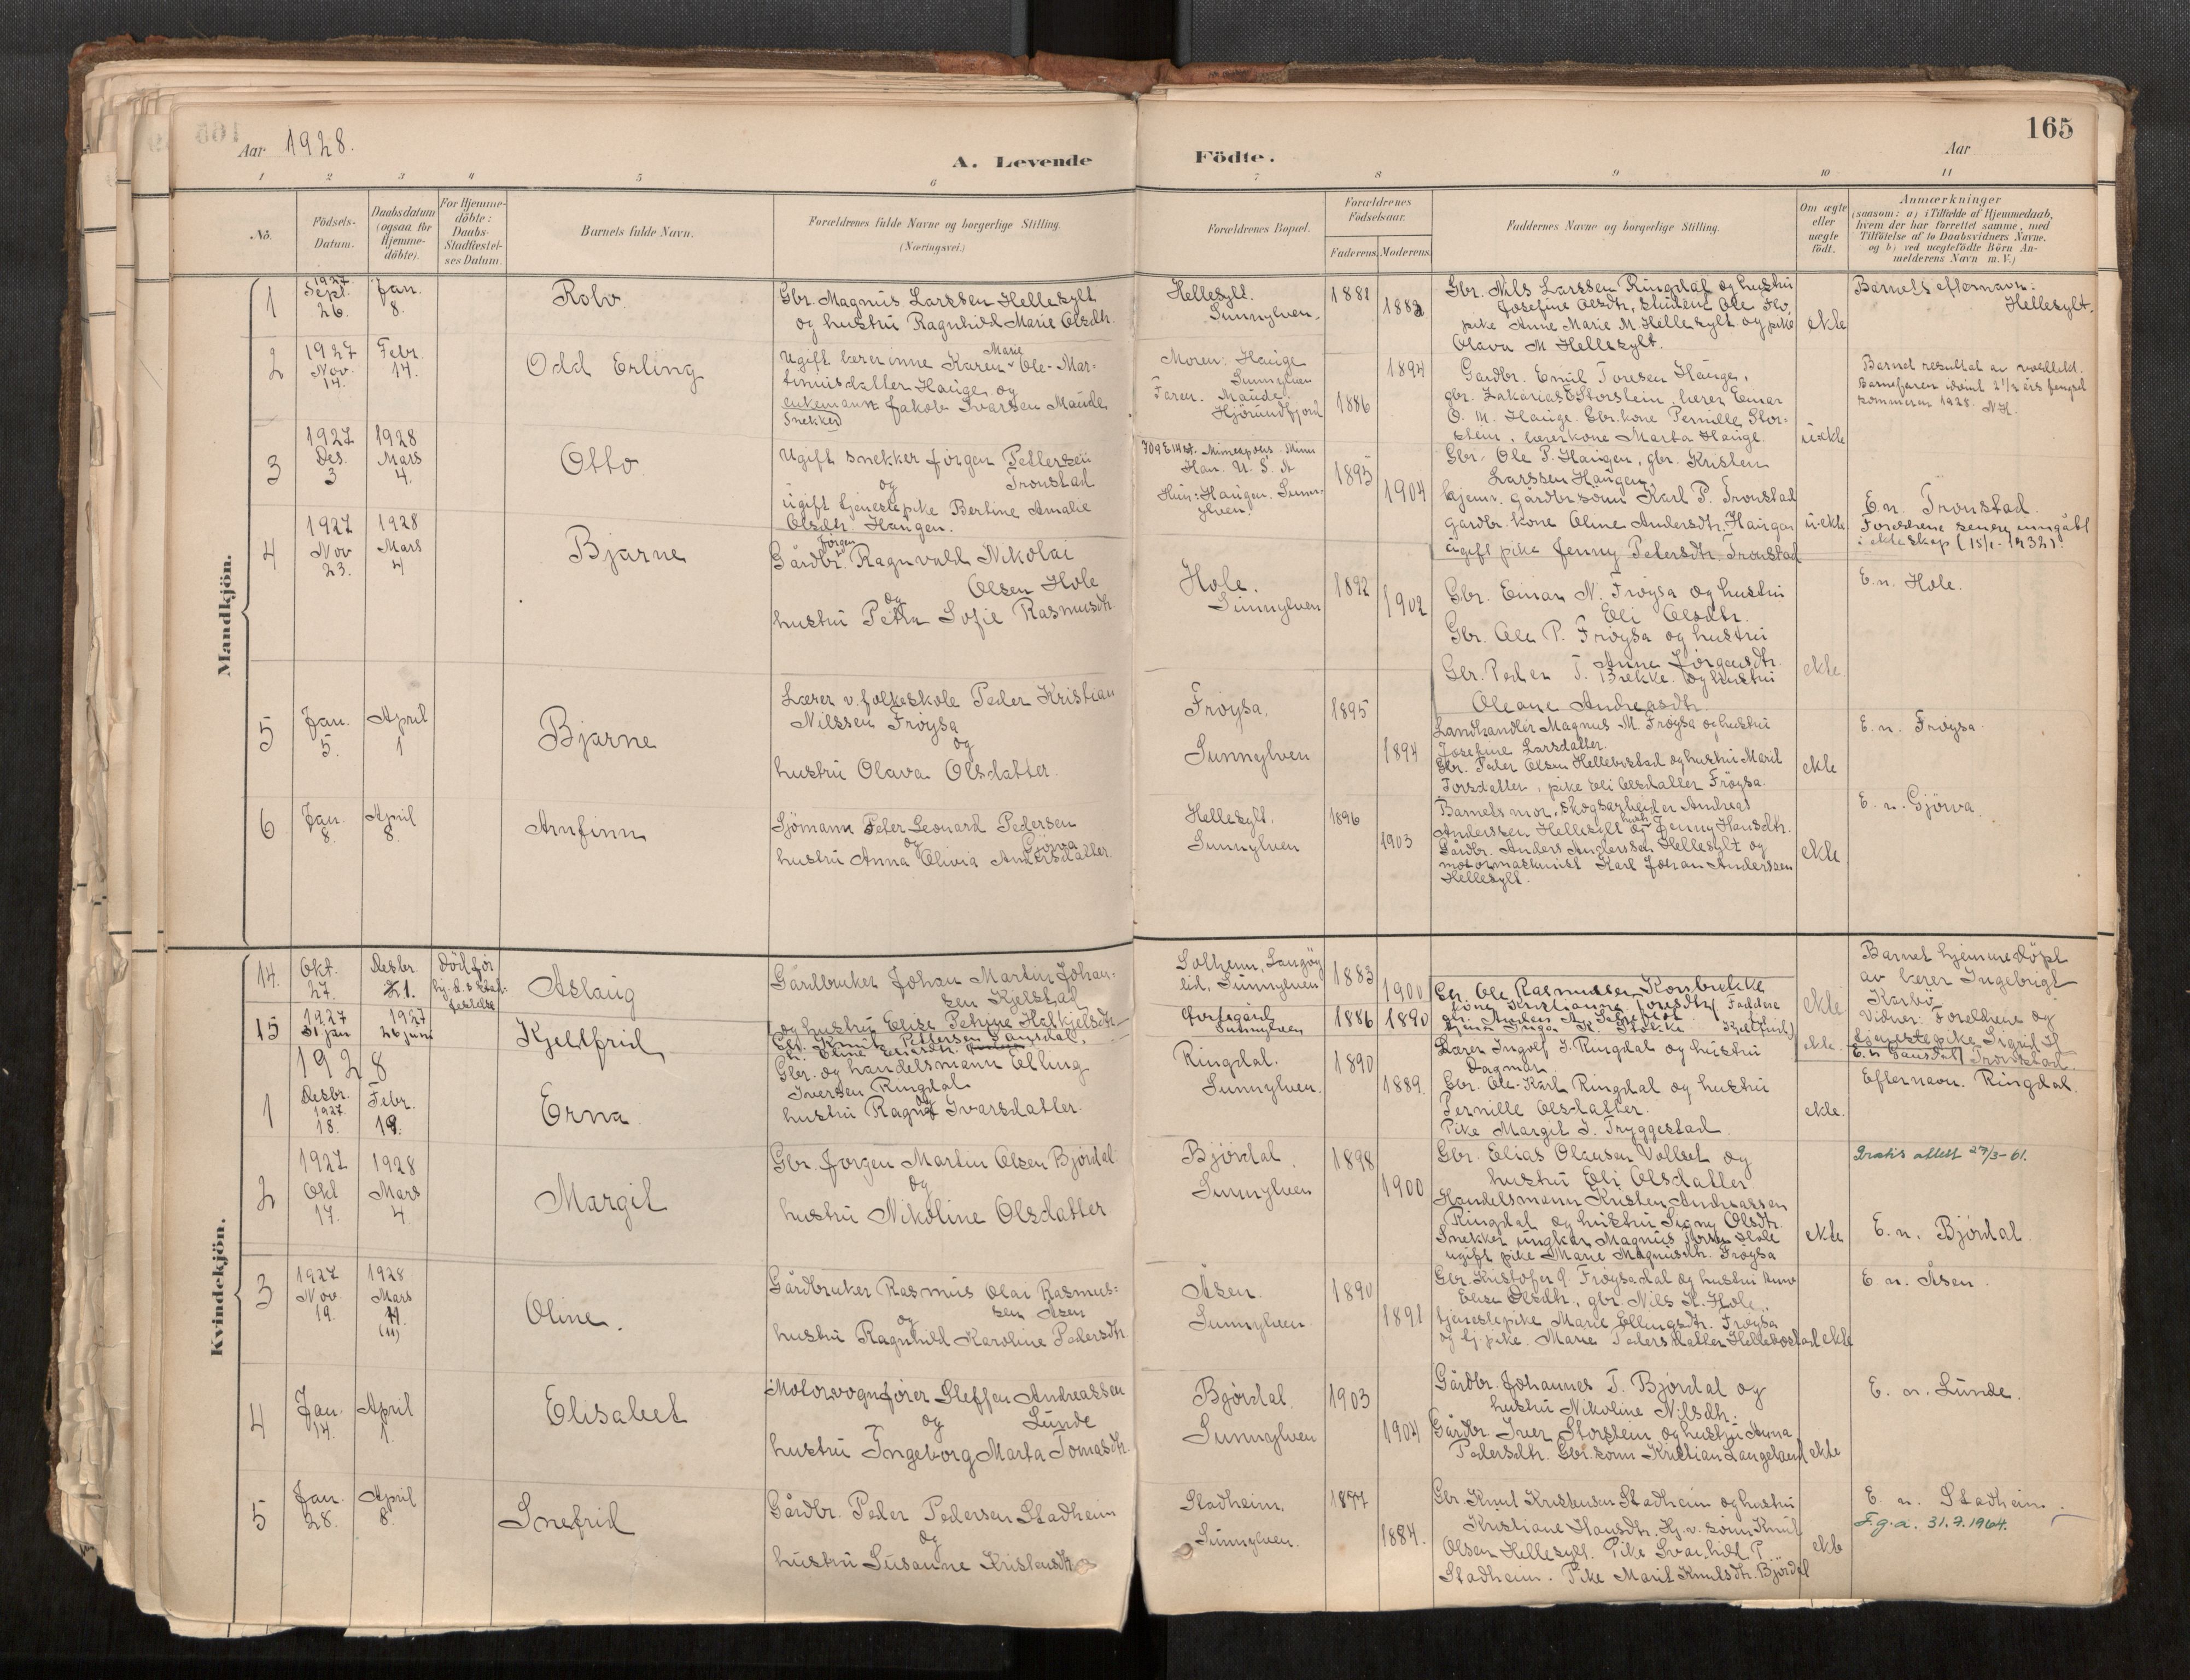 165
Aar 1928.
A. Levende Födte.
Aar
1 2 3 4 5 6 7 8 9 10 11
No.
Födsels-Datum.
Daabsdatum (ogsaa for Hjemme-döbte).
For Hjemme-döbte: Daabs-Stadfæstelses Datum.
Barnets fulde Navn.
Forældrenes fulde Navne og borgerlige Stilling. (Næringsvei.)
Forældrenes Bopæl.
Forældrenes Födselsaar.
Faderens. Moderens.
Faddernes Navne og borgerlige Stilling.
Om ægte eller uægte födt.
Anmærkninger (saasom: a) i Tilfælde af Hjemmedaab, hvem der har forrettet samme, med Tilföielse af to Daabsvidners Navne. og b) ved uægtefödte Börn Anmelderens Navn m. V.)
Mandkjön.
1
1927 Sept. 26.
Jan. 8.
Rolv.
Gbr. Magnus Larssen Hellesylt
og hustru Ragnhild Marie Olsdtr.
Hellesylt.
Sunnylven.
1881
1882
Gbr. Nils Larssen Ringdal og hustru
Josefine Olsdtr, student Ole
pike Anne Marie M. Hellesylt og pike
Olava M Hellesylt.
ekte
Barnets efternavn:
Hellesylt.
2
1927 Nov. 14.
Febr. 14.
Odd Erling
Ugift lærerinne Karen Marie Ole-Mar-
tinusdatter Hauge og
enkemann Jakob Ivarsen Maude
Snekker
Moren: Hauge
Sunnylven
Faren: Maude.
Hjörundfjord
1894
1886
Gardbr. Emil Toresen Hauge,
gbr. Zakarias Storstein, lærer Einar
O. M. Hauge. Gbr.kone Pernille Stor-
stein, lærerkone Marta Hauge.
uekte
Barnet resultat av voldtekt.
Barnefaren idömt 2 1/2 års fengsel
sommeren 1928. NK.
3
1927 Des. 3
1928 Mars 4.
Otto.
Ugift snekker Jörgen Pettersen
og Tronstad
ugift tjenestepike Bertine Amalie
Olsdtr Haugen.
709 E 14 st. Mineapolis. Minn
Han. U. S. A
Hun: Haugen. Sunn-
ylven.
1895
1904
Gbr. Ole P. Haugen, gbr. Kristen
Larssen Haugen,
hjemv. gårdbr.sönn Karl P. Tronstad
gardbr.kone Oline Andersdtr. Haugen
ugift pike Jenny Petersdtr. Tronstad
uekte
E.n. Tronstad.
Foreldrene senere inngått
i ekteskap (15/1-1932).
4
1927 Nov 23.
1928 Mars 4
Bjarne
Gårdbr. Jörgen Ragnvald Nikolai
Olsen Hole
og
hustru Petra Sofie Rasmusdtr.
Hole.
Sunnylven
1892
1902
Gbr. Einar N. Fröysa og hustru
Eli Olsdtr.
Gbr. Ole P. Fröysa og hustru
Anne Jörgensdtr.
Gbr. Peder T. Brekke. og hustru
Oleane Andreasdtr.
ekte
E.n. Hole.
5
Jan. 5.
April 1
Bjarne
Lærer v. folkeskole Peder Kristian
Nilssen Fröysa
og
hustru Olava Olsdatter.
Fröysa,
Sunnylven
1895
1894
Landhandler Magnus M. Fröysa og hustru
Josefine Larsdatter.
Gbr. Peder Olsen Hellebostad og hustru Marit
Torsdatter, pike Eli Olsdatter Fröysa.
ekte
E.n. Fröysa
6
Jan. 8.
April 8.
Arnfinn
Sjömann Peter Leonard Pedersen
og Gjörva
hustru Anna Olivia Andersdatter.
Hellesylt,
Sunnylven
1896
1903
Barnets mor, skogsarbeider Andreas
Anderssen Hellesylt og hustru Jenny Hansdtr.
Gårdbr. Anders Anderssen Hellesylt og
motormaskinist Karl Johan Anderssen
Hellesylt.
ekte
E.n. Gjörva.
Kvindekjön.
14.
Okt. 27.
Desbr. 21.
Död för hj. d. s stad-festelse
Aslaug
Gårdbruker Johan Martin Johan-
sen Kjelstad
og hustru Elise Petrine Haskjelsdtr
Solheim, Langöy
lid, Sunnylven
1883
1900
Gbr. Ole Rasmussen
ekte
Barnet hjemmedöpt
av lærer Ingebrigt
Karbö
Vidner: Foreldrene og
tjenestepike Sigrid
Tronstad.
15
1927 31 jan
1927 26 juni
Kjellfrid
Gbr. Knut Pettersen Langdal,
Sunnylven
1886 1890
ekte.
1928
1
Desbr. 1927. 18.
Febr. 19.
Erna
Gbr. og handelsmann Elling
Iversen Ringdal
og
hustru Ragna Ivarsdatter.
Ringdal.
Sunnylven.
1890
1889.
Lærer Ingolf J. Ringdal og hustru
Dagmar.
Gbr. Ole-Karl Ringdal og hustru
Pernille Olsdatter.
Pike Margit J. Tryggestad.
ekte.
Efternavn. Ringdal.
2
1927 Okt 17.
1928 Mars 4.
Margit
Gbr. Jörgen Martin Olsen Björdal
og
hustru Nikoline Olsdatter
Björdal.
Sunnylven
1898
1900
Gbr. Elias Olausen Vollset og
hustru Eli Olsdatter
Handelsmann Kristen Andreassen
Ringdal og hustru Signy Olsdtr.
Snekker ungkar Magnus Hole
ugift pike Marie Magnusdtr. Fröysa
ekte
Gratis attest 27/3-61.
E. n. Björdal.
3
1927 Nov. 19.
1928 Mars 11. (11)
Oline.
Gårdbruker Rasmus Olai Rasmus-
sen Åsen
og
hustru Ragnhild Karoline Pedersdtr.
Åsen.
Sunnylven
1890
1891
Gbr. Kristofer O. Fröysadal og hustru Anne
Elise Olsdtr., gbr. Nils K. Hole,
tjenestepike Marie Ellingsdtr. Fröysa
og tj.pike. Marie Pedersdatter Hellebostad
ekte
E. n. Åsen.
4
Jan. 14.
April 1.
Elisabet
Motorvognförer Steffen Andreassen
og Lunde
hustru Ingeborg Marta Tomasdtr.
Björdal.
Sunnylven
1903
1904
Gårdbr. Johannes T. Björdal og
hustru Nikoline Nilsdtr.
Gårdbr. Iver Storstein og hustru Anna
Pedersdtr. Gbr.sönn Kristian Langeland
ekte
E. n. Lunde.
5
Jan. 28.
April 8.
Snefrid
Gårdbr. Peder Pedersen Stadheim
og
hustru Susanne Kristensdtr
Stadheim,
Sunnylven.
1877
1884.
Gbr. Knut Kristensen Stadheim og hustru
Kristiane Hansdtr. Hj.v. sönn Knut
Olsen Hellesylt. Pike Svanhild P.
Stadheim. Pike Marit Knutsdtr. Björdal
ekte
E. n. Stadheim.
F.g.a. 31.7.1964.